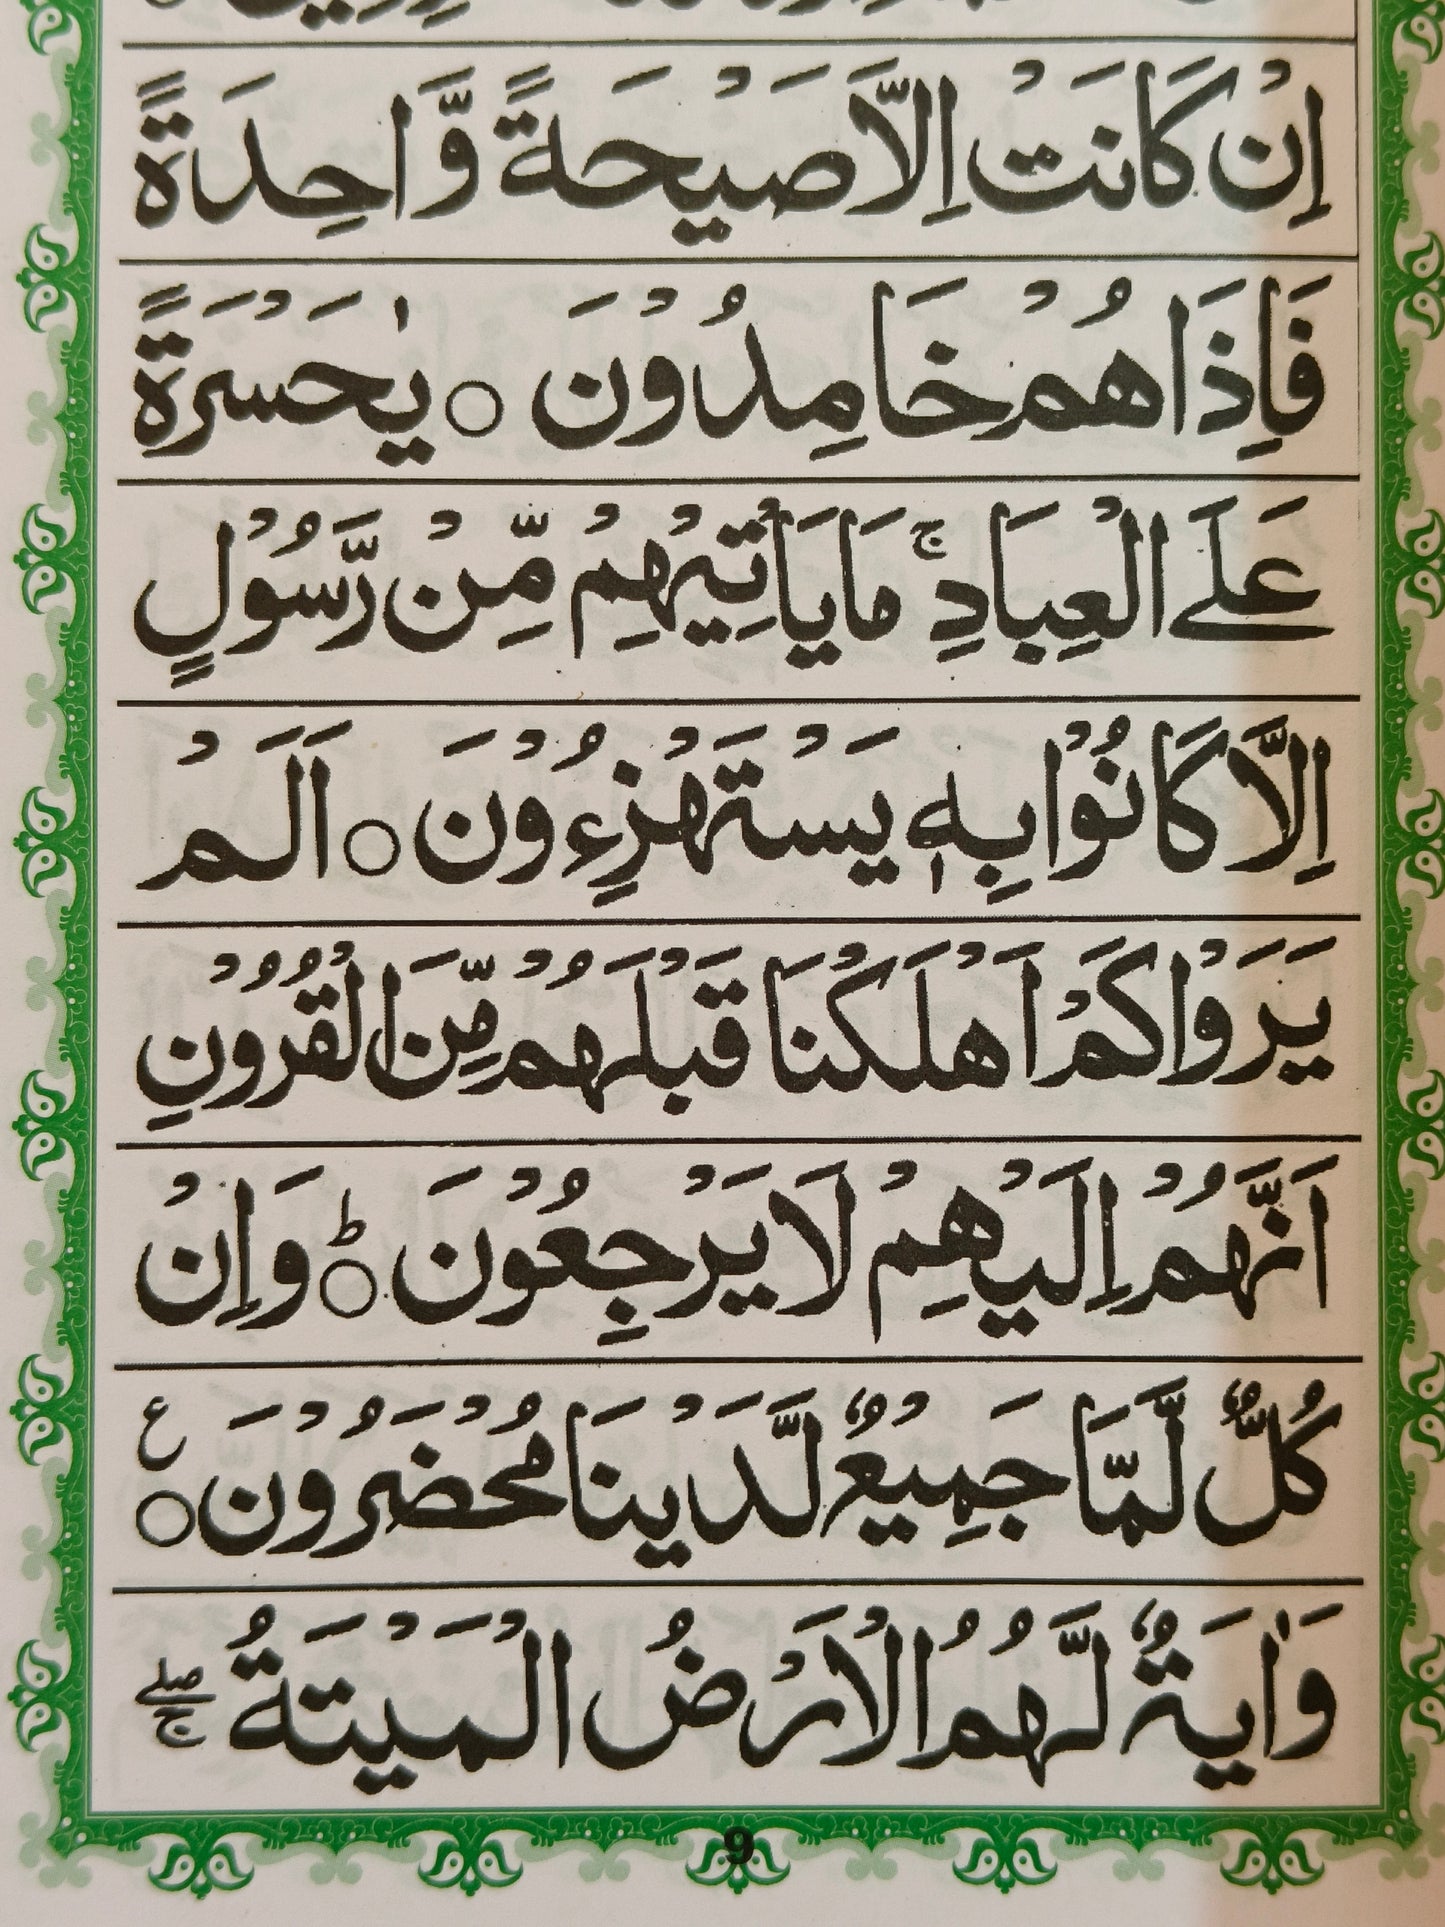 اِنْ كَانَتْ اِلَّا صَيْحَةً وَّاحِدَةً
فَاِذَا هُمْ خَامِدُوْنَ ○ يٰحَسْرَةً
عَلَى الْعِبَادِ ۚ مَا يَاْتِيْهِمْ مِّنْ رَّسُوْلٍ
اِلَّا كَانُوْا بِهٖ يَسْتَهْزِءُوْنَ ○ اَلَمْ
يَرَوْا كَمْ اَهْلَكْنَا قَبْلَهُمْ مِّنَ الْقُرُوْنِ
اَنَّهُمْ اِلَيْهِمْ لَا يَرْجِعُوْنَ ○ؕ وَاِنْ
كُلٌّ لَّمَّا جَمِيْعٌ لَّدَيْنَا مُحْضَرُوْنَ ○ ع
وَاٰيَةٌ لَّهُمُ الْاَرْضُ الْمَيْتَةُ ۖۚ
9